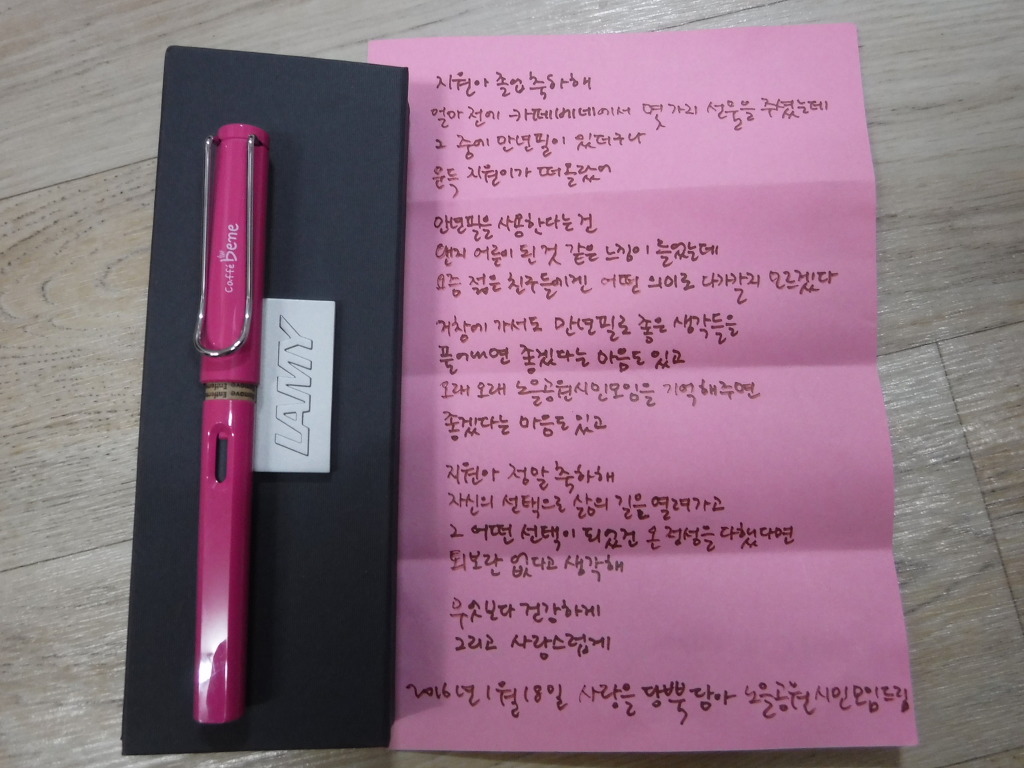 caffé bene
LAMY
지원아 졸업 축하해
얼마 전에 카페베네에서 몇 가지 선물을 주셨는데
그 중에 만년필이 있더구나
문득 지원이가 떠올랐어
만년필을 사용한다는 건
왠지 어른이 된 것 같은 느낌이 들었는데
요즘 젊은 친구들에겐 어떤 의미로 다가갈지 모르겠다
거창에 가서도 만년필로 좋은 생각들을
풀어내면 좋겠다는 마음도 있고
오래 오래 노을공원시민모임을 기억해주면
좋겠다는 마음도 있고
지원아 정말 축하해
자신의 선택으로 삶의 길을 열려가고
그 어떤 선택이 되었건 온 정성을 다했다면
퇴보란 없다고 생각해
무엇보다 건강하게
그리고 사랑스럽게
2016년 1월 18일 사랑을 담뿍 담아 노을공원시민모임드림